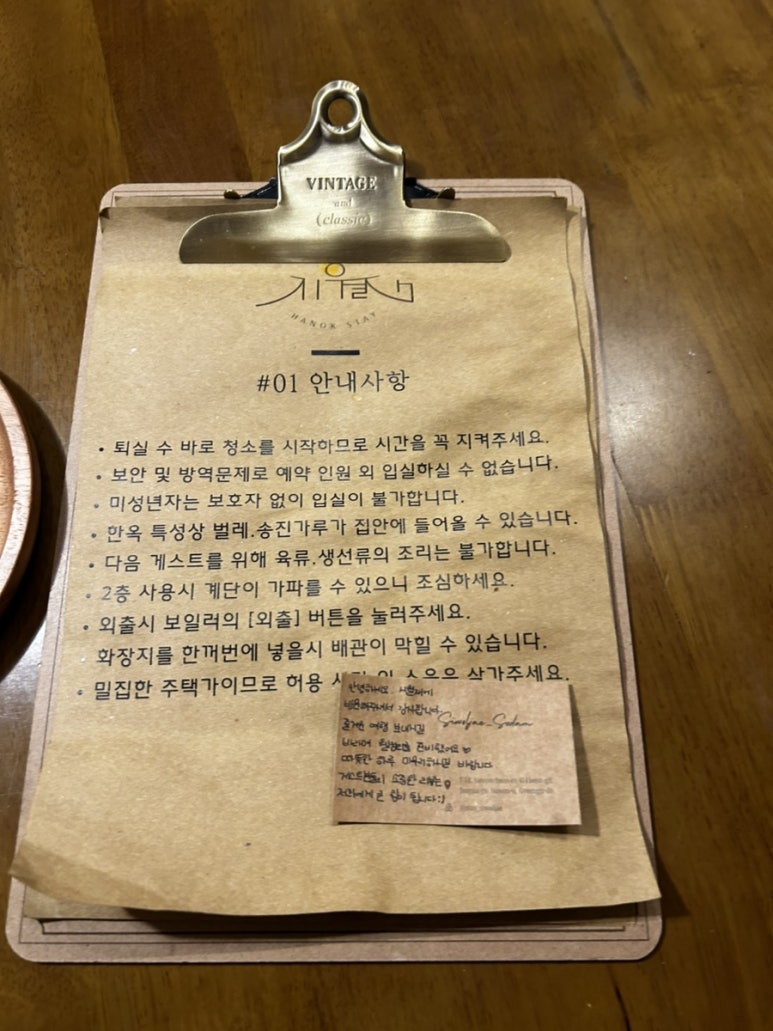 VINTAGE
and
(classic)
HANOK STAY
#01 안내사항
• 퇴실 수 바로 청소를 시작하므로 시간을 꼭 지켜주세요.
• 보안 및 방역문제로 예약 인원 외 입실하실 수 없습니다.
• 미성년자는 보호자 없이 입실이 불가합니다.
• 한옥 특성상 벌레.송진가루가 집안에 들어올 수 있습니다.
• 다음 게스트를 위해 육류.생선류의 조리는 불가합니다.
• 2층 사용시 계단이 가파를 수 있으니 조심하세요.
• 외출시 보일러의 [외출] 버튼을 눌러주세요.
화장지를 한꺼번에 넣을시 배관이 막힐 수 있습니다.
• 밀집한 주택가이므로 허용 삼가주세요.
안녕하세요.
감사합니다
즐거운 여행 보내시길
준비했어요
따뜻한 하루 마무리하시길 바랍니다
소중한
큰 힘이 됩니다:)